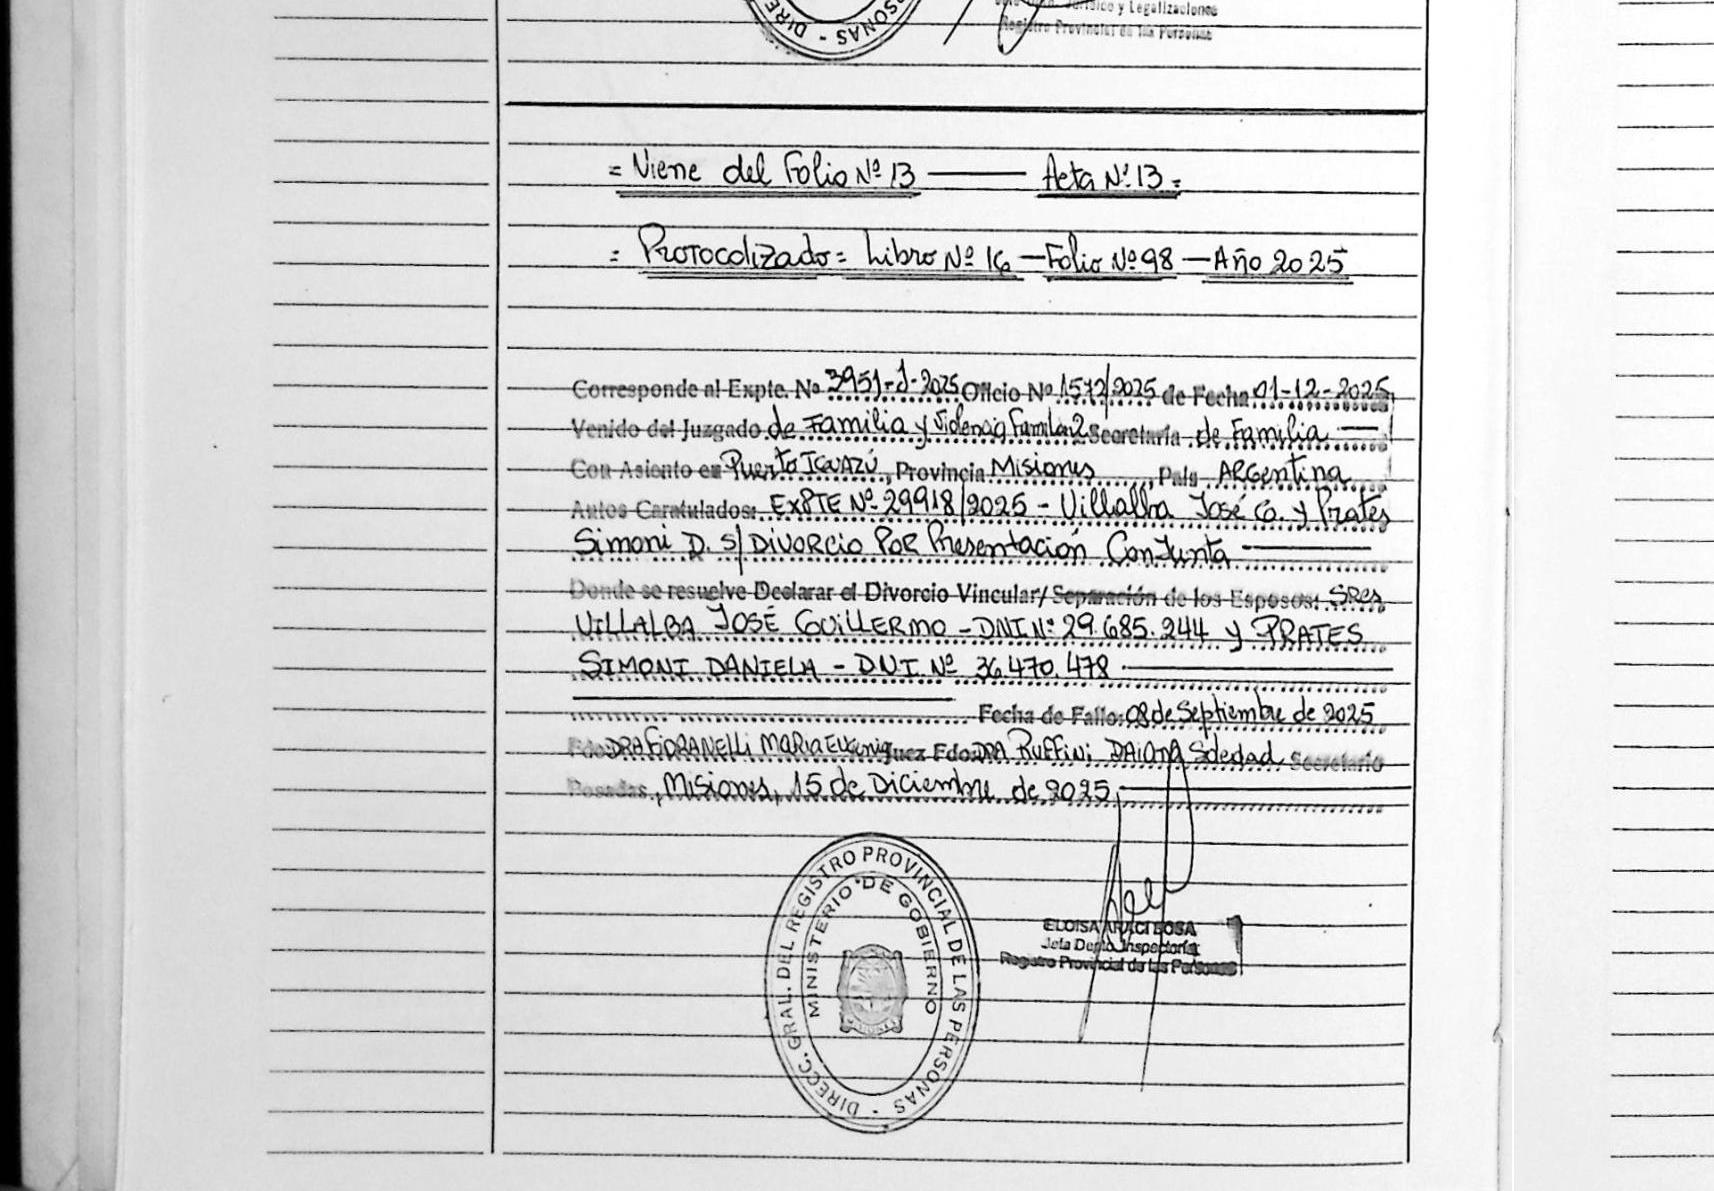 DIRE
PERSONAS -
Jurídico y Legalizaciones
Registro Provincial de las Personas
= Viene del Folio Nº 13 —— Acta Nº 13 =
= Protocolizado = Libro Nº 16 — Folio Nº 98 — Año 2025
Corresponde al Expte. Nº 3951-J-2025 Oficio Nº 1572/2025 de Fecha 01-12-2025
Venido del Juzgado de Familia y Violencia Familia 2 Secretaría de Familia
Con Asiento en Puerto Iguazú, Provincia Misiones, País Argentina
Autos Caratulados: EXPTE Nº 29918/2025 - Villalba José G. y Prates
Simoni D. S/ Divorcio Por Presentación Conjunta
Donde se resuelve Declarar el Divorcio Vincular/ Separación de los Esposos: Sres
VILLALBA JOSÉ GUILLERMO - DNI Nº 29.685.244 y PRATES
SIMONI DANIELA - DNI. Nº 36.470.478
Fecha de Fallo: 08 de Septiembre de 2025
Fdo: DRA FIORANELLI MARIA EUGENIA Juez Fdo: DRA Ruffini DAIANA Soledad Secretario
Posadas, Misiones, 15 de Diciembre de 2025
DIRECC. GRAL. DEL REGISTRO PROVINCIAL DE LAS PERSONAS -
MINISTERIO DE GOBIERNO
ELOISA ARACI SOSA
Jefa Depto. Inspectoría
Registro Provincial de las Personas